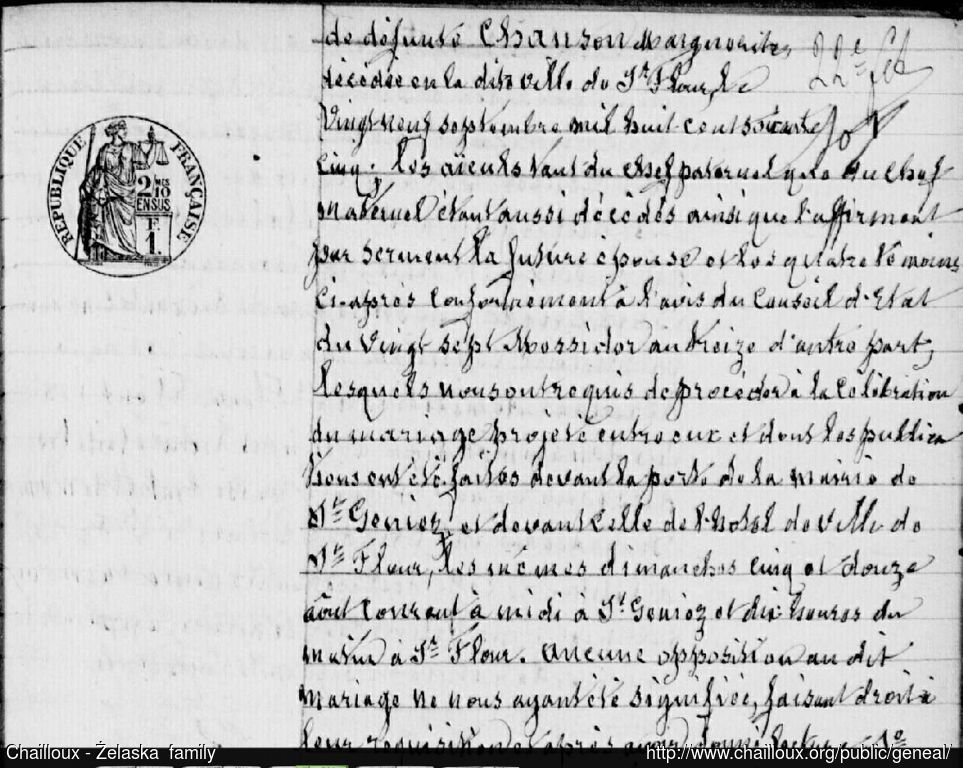 de défunte Chanson Marguerite,
22e fet
décédée en la dite ville de St Flour, le
Vingt neuf septembre mil huit cent soixante
Cinq; les aïeuls tant du chef paternel que du chef
maternel étant aussi décédés ainsi que l'affirment
par serment la future épouse et les quatre témoins
Ci-après Conformément à l'avis du Conseil d'Etat
du Vingt sept Messidor an treize d'autre part,
lesquels nous ont requis de procéder à la Célébration
du mariage projeté entre eux et dont les publica
tions ont été faites devant la porte de la mairie de
St Geniez, et devant Celle de l'hotel de Ville de
St Flour, les mêmes dimanches cinq et douze
août Courant à midi à St Geniez et dix heures du
matin à St Flour. Aucune opposition au dit
mariage ne nous ayant été signifiée, faisant droit à
leur requisition et après avoir donné lecture 1o
RÉPUBLIQUE FRANÇAISE
2/10 EN SUS
F. 1
Chailloux - Żelaska family
http://www.chailloux.org/public/geneal/